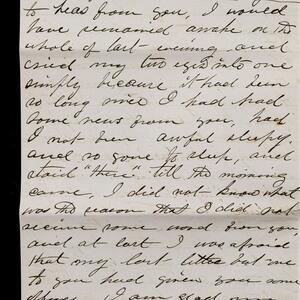 to hear from you, I would
have remained awake on the
whole of last evening and
cried my two eyes into one
simply because it had been
so long since I had had
some news from you, had
I not been awful sleepy,
and so gone to sleep, and
staid "there" till the morning
came, I did not know what
was the reason that I did not
receive some word from you,
and at last I was afraid
that my last letter but one
to you had given you some
I am glad